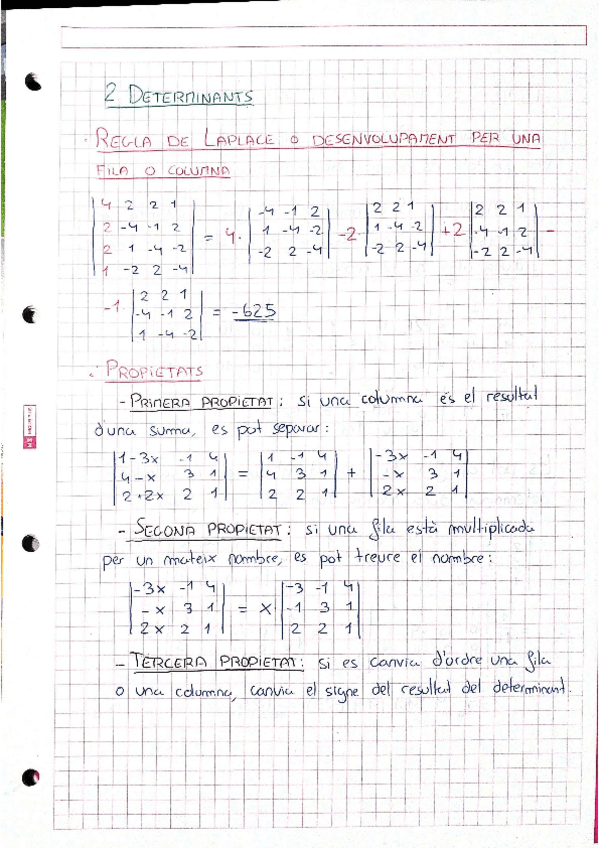 2 DETERMINANTS
· REGLA DE LAPLACE O DESENVOLUPAMENT PER UNA
FILA O COLUMNA
|4 2 2 1; 2 -4 -1 2; 2 1 -4 -2; 1 -2 2 -4| = 4 · |-4 -1 2; 1 -4 -2; -2 2 -4| -2 · |2 2 1; 1 -4 -2; -2 2 -4| +2 |2 2 1; -4 -1 2; -2 2 -4| -
-1 · |2 2 1; -4 -1 2; 1 -4 -2| = -625
· PROPIETATS
- PRIMERA PROPIETAT: si una columna és el resultat
d'una suma, es pot separar:
|1-3x -1 4; 4-x 3 1; 2+2x 2 1| = |1 -1 4; 4 3 1; 2 2 1| + |-3x -1 4; -x 3 1; 2x 2 1|
- SEGONA PROPIETAT: si una fila està multiplicada
per un mateix nombre, es pot treure el nombre:
|-3x -1 4; -x 3 1; 2x 2 1| = x · |-3 -1 4; -1 3 1; 2 2 1|
- TERCERA PROPIETAT: si es canvia d'ordre una fila
o una columna, canvia el signe del resultat del determinant.